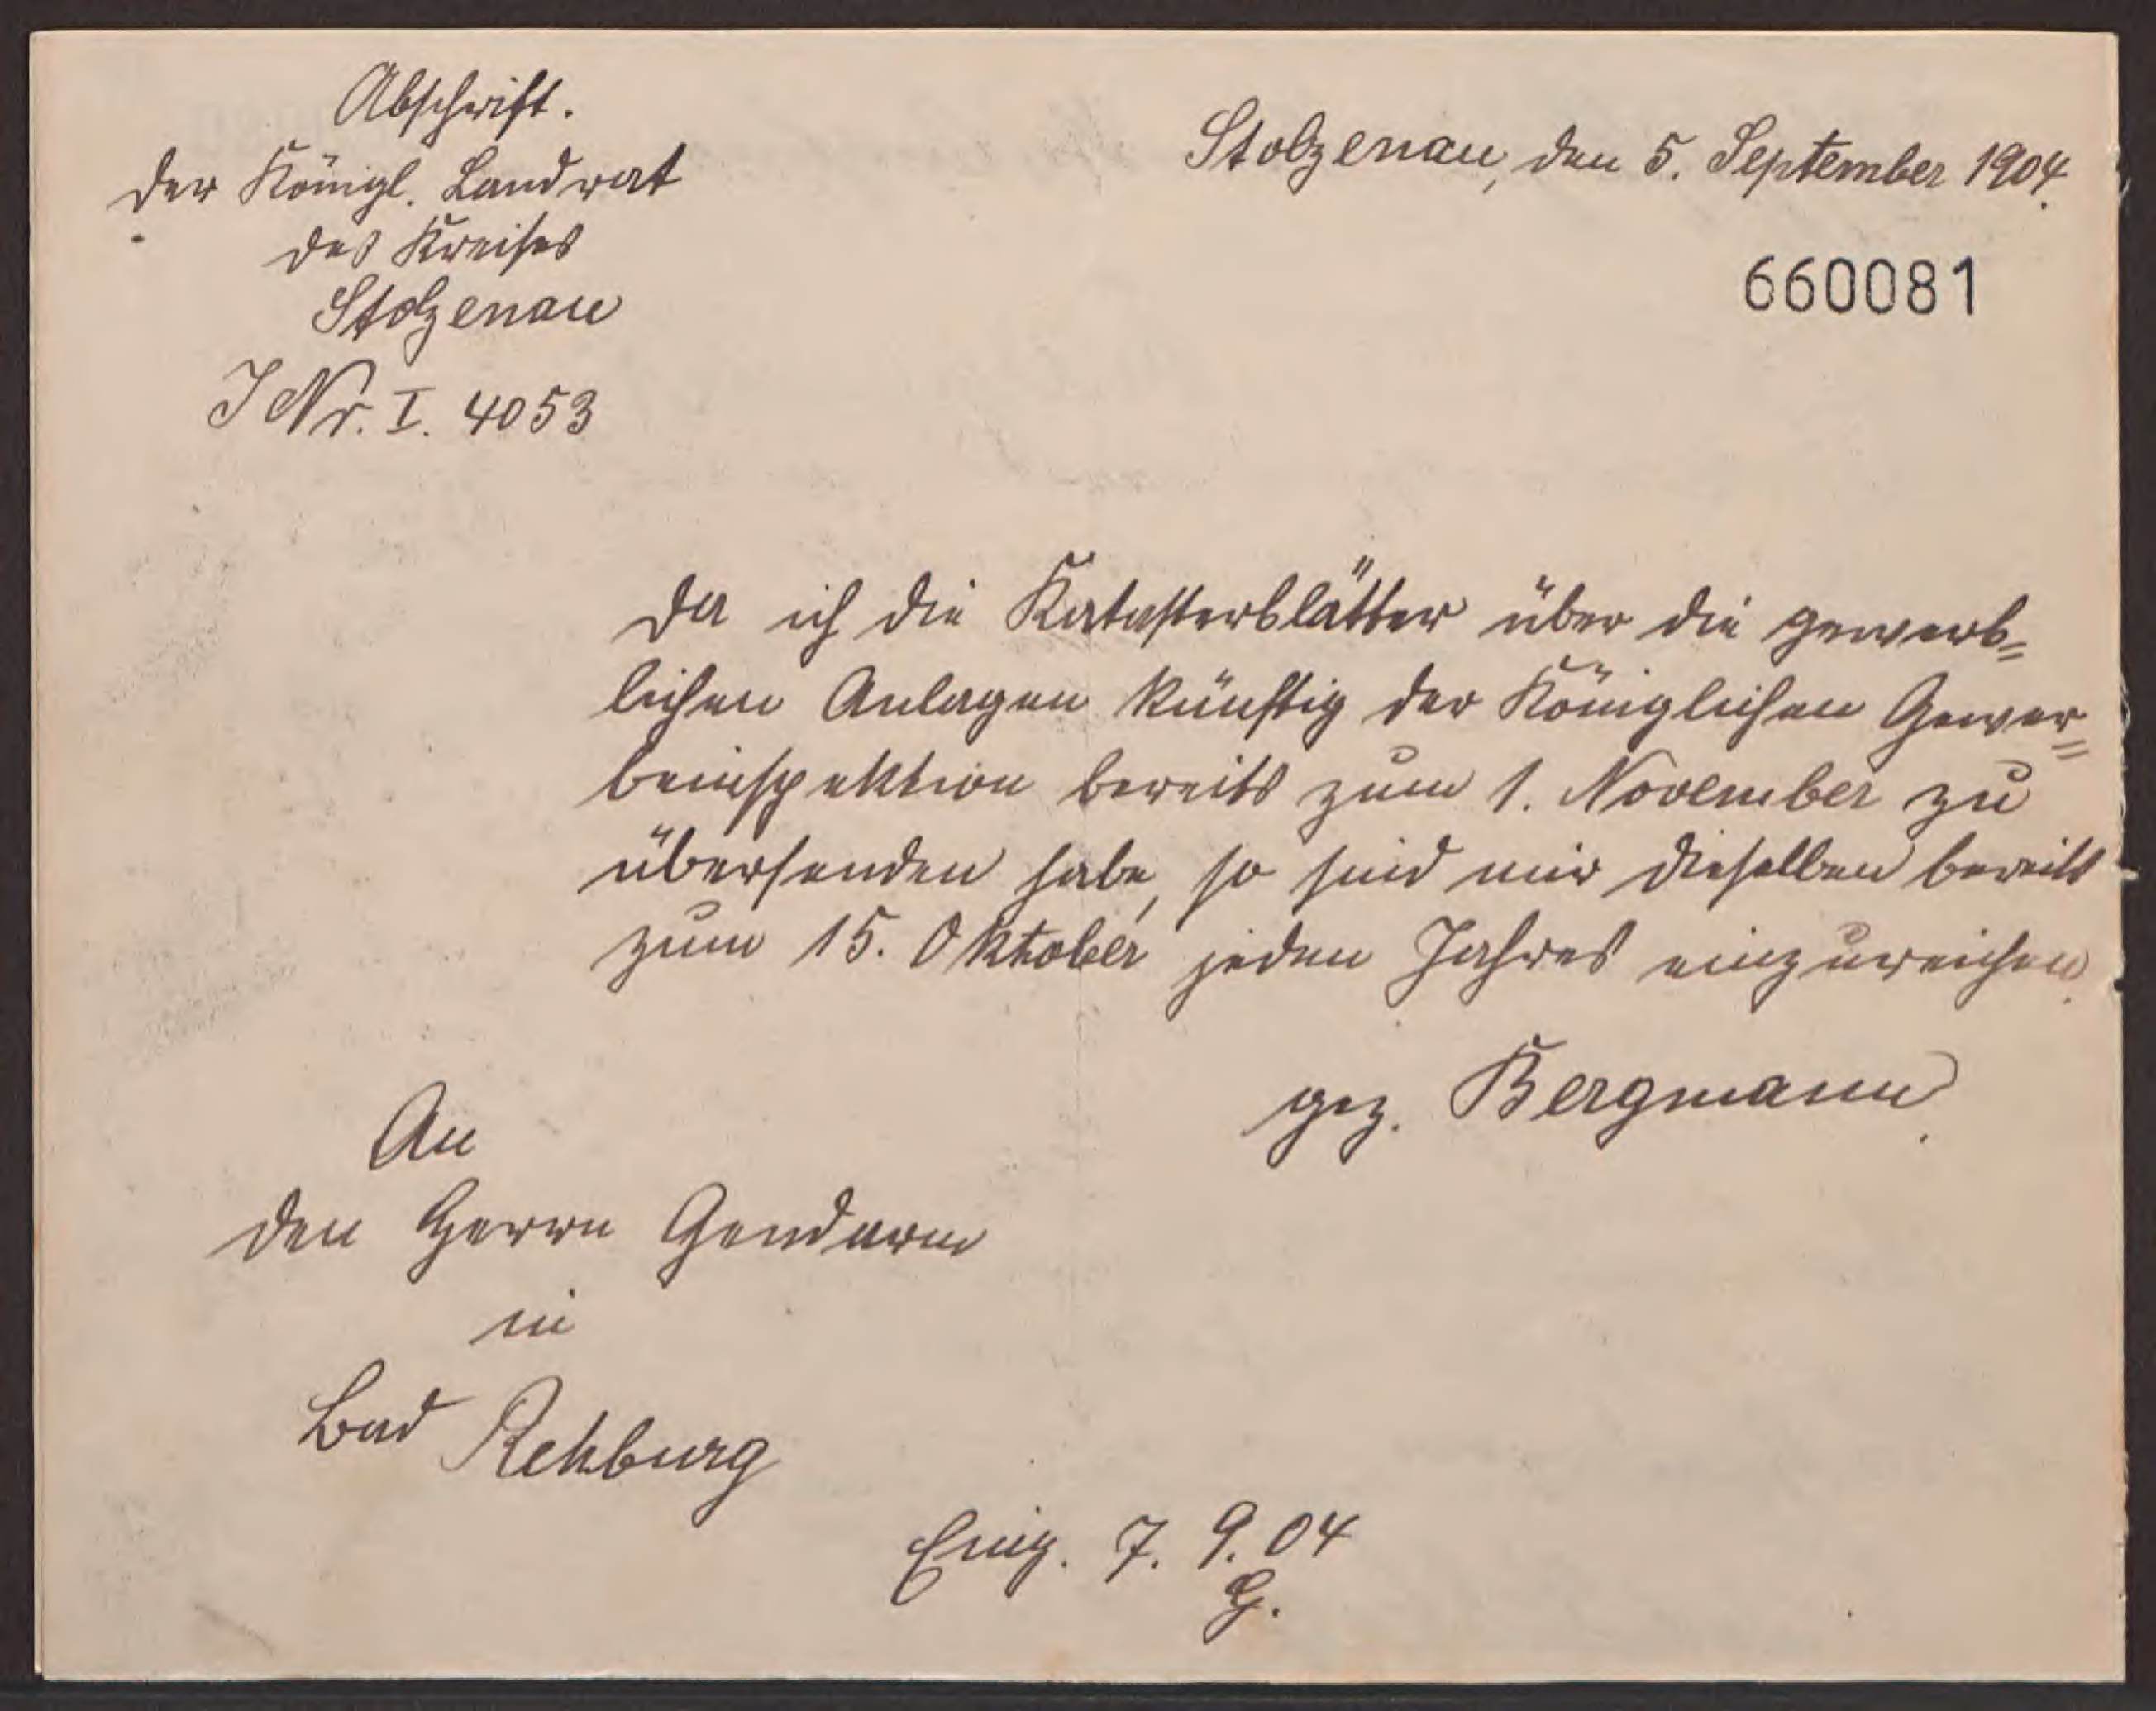 Abschrift.
Der Königl. Landrat
des Kreises
Stolzenau
J Nr. I. 4053
Stolzenau, den 5. September 1904.
660081
Da ich die Katasterblätter über die gewerb=
lichen Anlagen künftig der Königlichen Gewer=
beinspektion bereits zum 1. November zu
übersenden habe, so sind mir dieselben bereits
zum 15. Oktober jeden Jahres einzureichen.
gez. Bergmann.
An
den Herrn Gendarm
in
Bad Rehburg
Eing. 7. 9. 04